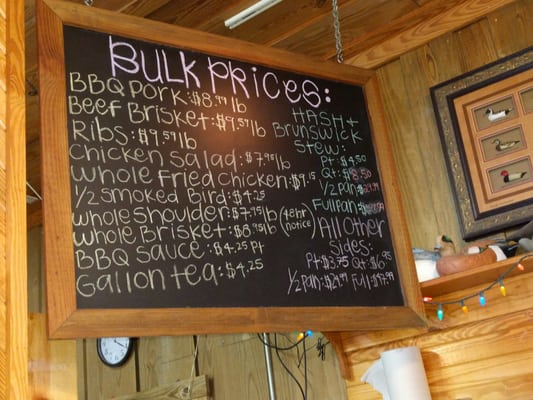 BULK PRICES:
BBQ PORK: $8.99 lb
Beef Brisket: $9.59 lb
Ribs: $9.59 lb
Chicken Salad: $7.95 lb
Whole Fried Chicken: $9.15
1/2 Smoked Bird: $4.25
Whole Shoulder: $7.95 lb (48hr
Whole Brisket: $8.95 lb notice)
BBQ Sauce: $4.25 Pt
Gallon tea: $4.25
HASH +
Brunswick
Stew:
Pt: $4.50
Qt: $8.50
1/2 Pan:
Full Pan:
All Other
Sides:
Pt $3.75 Qt: $6.95
1/2 Pan: $24.99 Full: